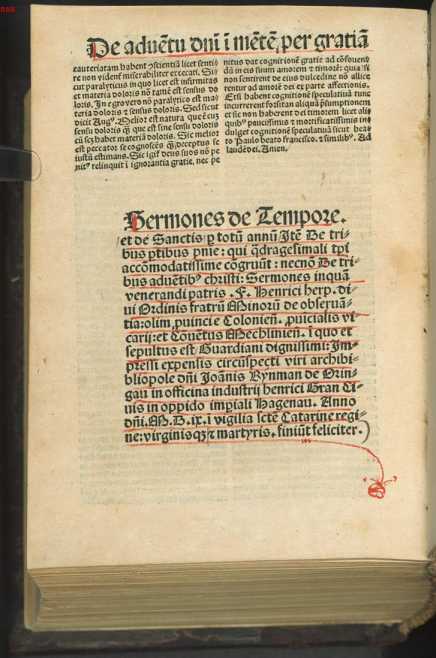 De aduẽtu dñi ĩ mẽtẽ, per gratiã
cauteriatam habent ↄscientiã licet sentire
non vident̃ miserabiliter excecati. Sicut
paralyticus in quo licet est infirmitas
et materia doloris nõ tamẽ est sensus doloris.
In egro vero nõ paralytico est materia
doloris et sensus doloris. Sed sicut
dicit Aug⁹. Melior est natura que cũ
sensu doloris est
cũ habet materiã doloris. Sic melior
est peccator se cognoscẽs q̃ deceptus se
iustũ estimans. Sic igit̃ deus suos nõ permittit
relinqui ĩ ignorantia gratie, nec
nitus dat cognitionẽ gratie ad cõfouendũ
in eis suum amorem et timorẽ: quia si
non sentirent de eius dulcedine nõ allicerentur
ad amorẽ dei ex parte affectionis.
Et si habent cognitionẽ speculatiuã tunc
incurrerent forsitan aliquã psumptionem
et sic non haberent dei timorem licet aliquib⁹
paucissimis et mortificatissimis indulget
cognitionẽ speculatiuã sicut beato
Paulo beato francisco. et similib⁹. Ad
laudẽ dei. Amen.
Sermones de Tempore.
et de Sanctis ꝑ totũ annũ Itẽ De tribus
ꝑtibus pnĩe: qui q̃dragesimali tp̃i
accõmodatissime cõgruũt: necnõ De tribus
aduẽtib⁹ christi: Sermones inquã
venerandi patris. F. Henrici herp. diui
Ordinis fratrũ Minorũ de obseruãtia:
olim, puincie Colonieñ. puincialis vicarij:
et Cõuẽtus Mechlinieñ. ĩ quo et
sepultus est, Guardiani dignissimi: Impressi
expensis circũspecti viri archibibliopole
dñi Joãnis Rynman de Oringau
in officina industrij henrici Gran Ciuis
in oppido imꝑiali Hagenau. Anno
dñi. M. D. ix. ĩ vigilia sctẽ Catarine regine:
virginisqꝫ et martyris. finiũt feliciter.